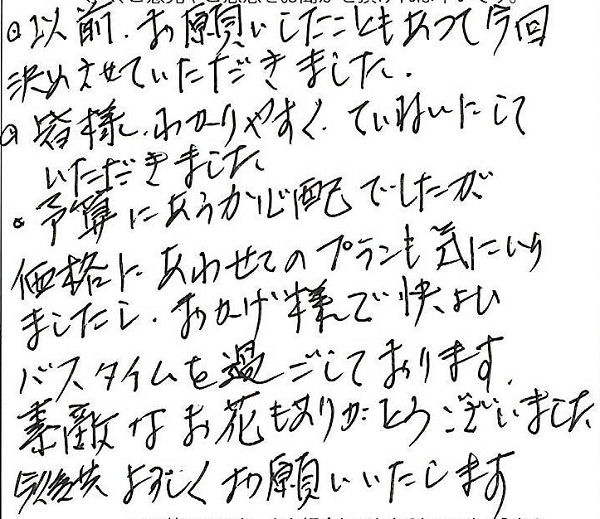 ○以前、お願いしたこともあって今回
決めさせていただきました。
○皆様、わかりやすく、ていねいにして
いただきました
○予算にあうか心配でしたが
価格にあわせてのプランも気にいり
ましたし、おかげ様で快よい
バスタイムを過ごしております。
素敵なお花もありがとうございました
今後共よろしくお願いいたします